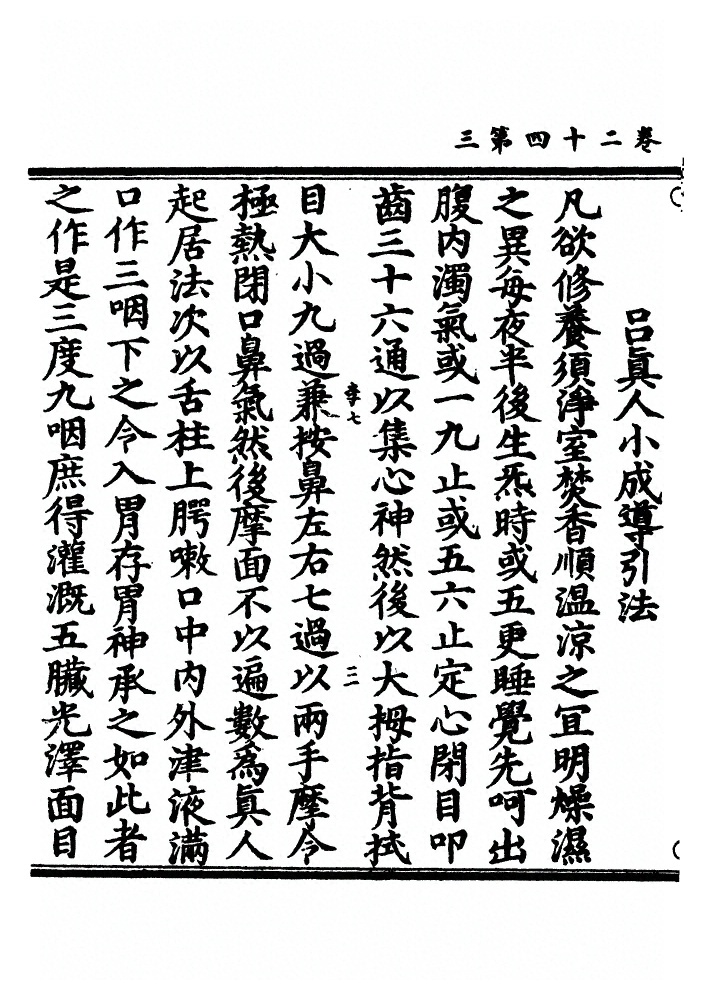 卷二十四第三
呂眞人小成導引法
凡欲修養須淨室焚香順温涼之宜明燥濕
之異每夜半後生炁時或五更睡覺先呵出
腹内濁氣或一九止或五六止定心閉目叩
齒三十六通以集心神然後以大拇指背拭
李七
三
目大小九過兼按鼻左右七過以兩手摩令
極熱閉口鼻氣然後摩面不以遍數為眞人
起居法次以舌柱上腭嗽口中内外津液滿
口作三咽下之令入胃存胃神承之如此者
之作是三度九咽庶得灌溉五臟光澤面目